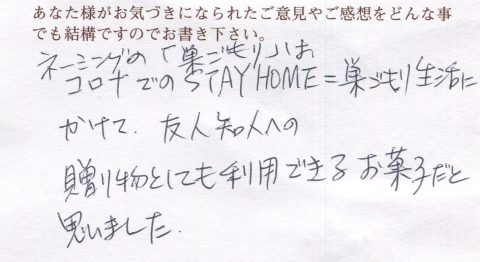 あなた様がお気づきになられたご意見やご感想をどんな事
でも結構ですのでお書き下さい。
ネーミングの「巣ごもり」は
コロナでのSTAY HOME=巣ごもり生活に
かけて、友人知人への
贈り物としても利用できるお菓子だと
思いました.